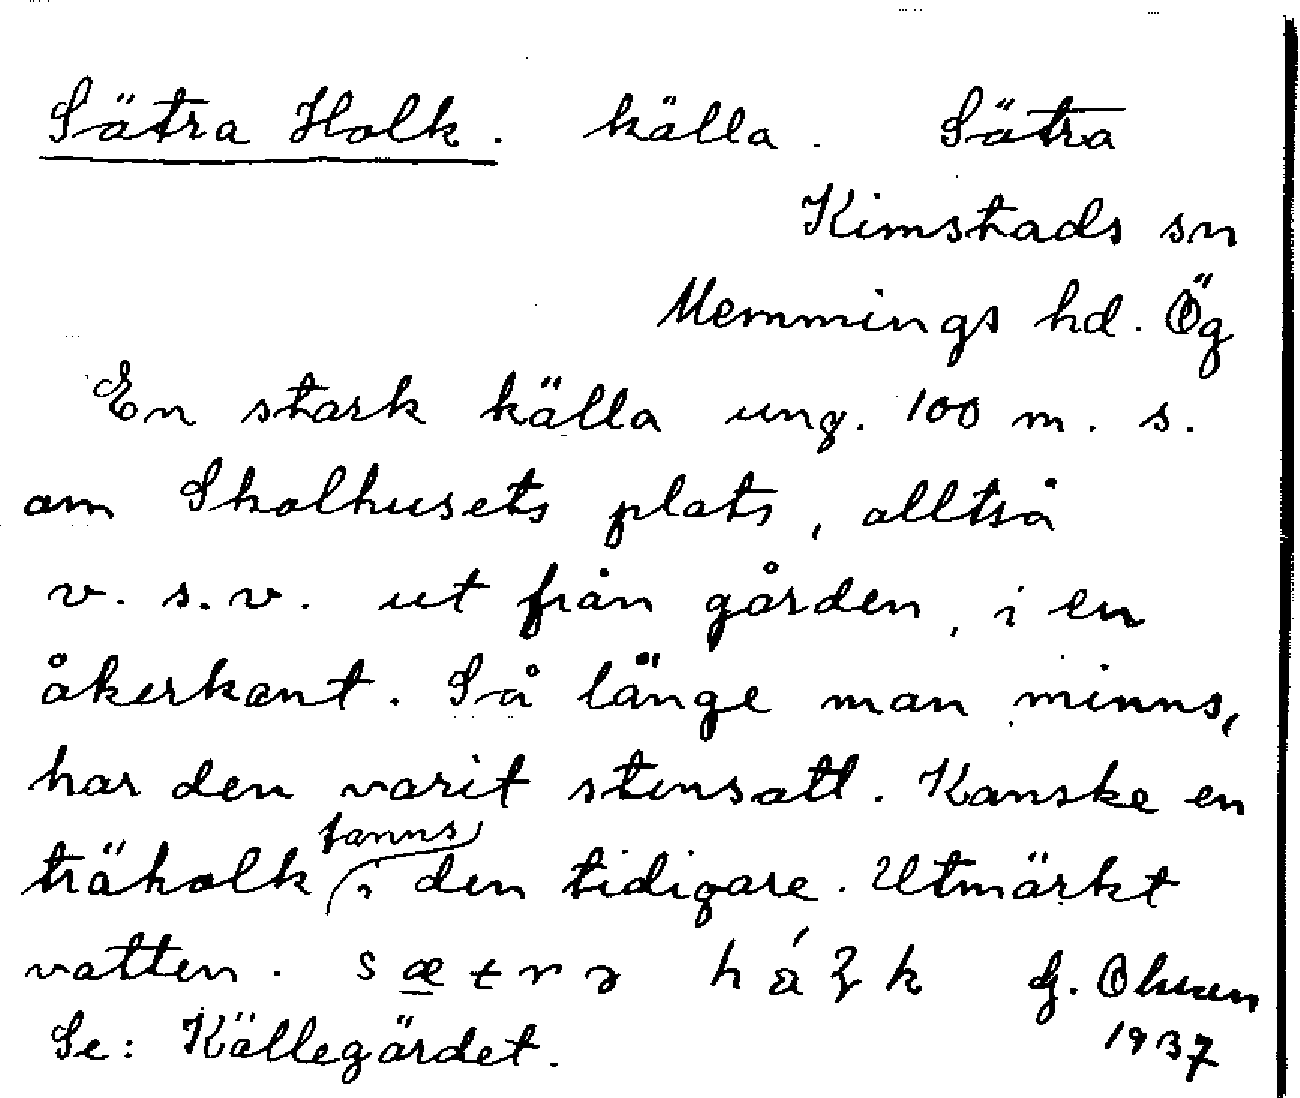 Sätra Holk. källa. Sätra
Kimstads sn
Memmings hd. Ög
En stark källa ung. 100 m. s.
om Skolhusets plats, alltså
v. s. v. ut från gården, i en
åkerkant. Så länge man minns,
har den varit stensatt. Kanske en
fanns
träholk i den tidigare. Utmärkt
vatten.
Se: Källegärdet. 1937